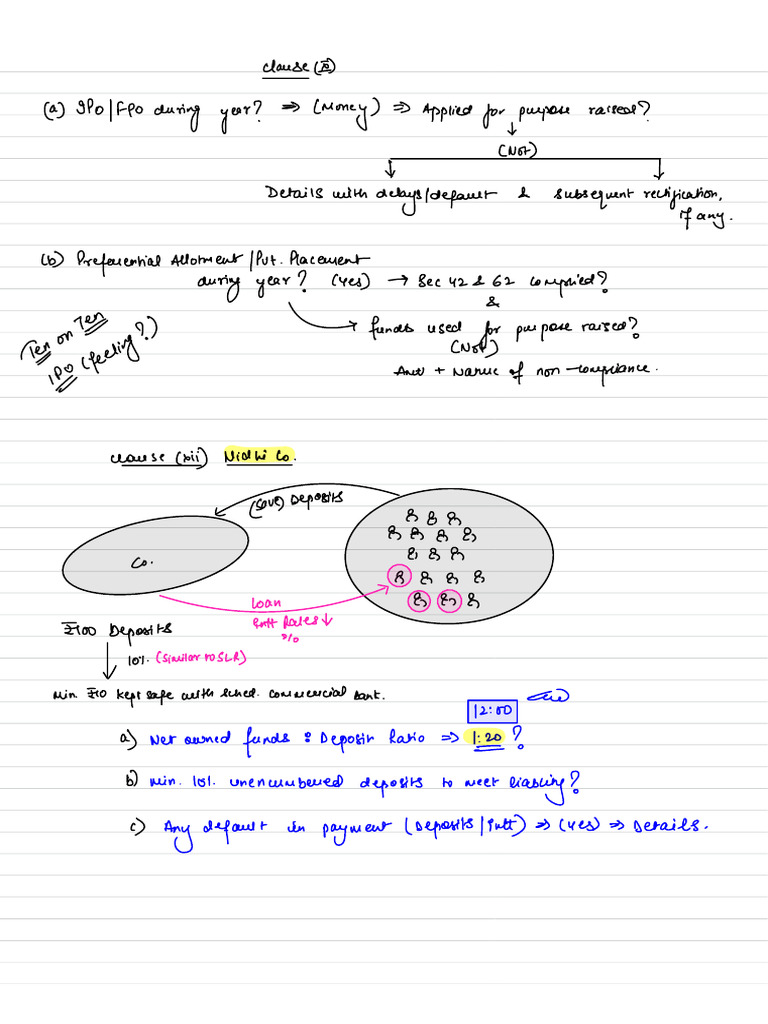 Clause (X)
(a) IPO/FPO during year? ⇒ (Money) ⇒ Applied for purpose raised?
↓
(Not)
Details with delays/default & subsequent rectification,
if any.
(b) Preferential Allotment/Pvt. Placement
during year? (Yes) → Sec 42 & 62 complied?
&
→ funds used for purpose raised?
(Not)
Amt + Nature of non-compliance.
Ten on Ten
IPO (feeling?)
Clause (xii) Nidhi Co.
(save) Deposits
Co.
Loan
Intt Rates ↓
%
₹100 Deposits
↓ 10%. (Similar to SLR)
Min. ₹10 kept safe with sched. commercial bank.
12:00
a) Net owned funds : Deposit Ratio ⇒ 1:20 ?
b) Min. 10% unencumbered deposits to meet liability?
c) Any default in payment (Deposits/Intt) ⇒ (Yes) ⇒ Details.